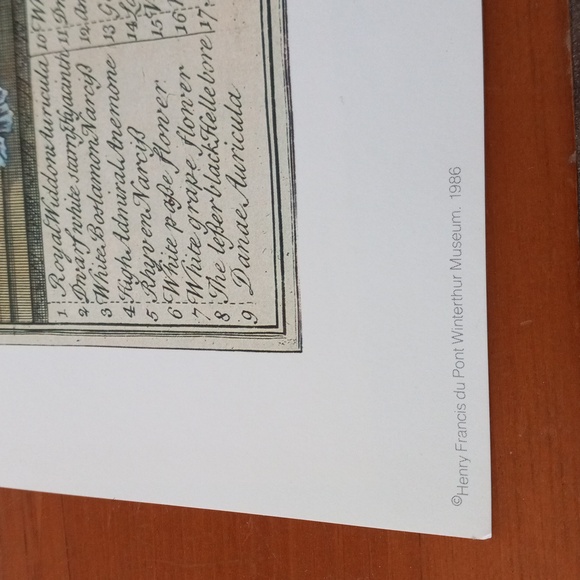 1 Royal Widdow Auricula
2 Dwarf white starry Hyacinth
3 White Bosłamon Narciß
4 High Admiral Anemone
5 Rhyven Narciß
6 White flower
7 White grape flower
8 The leßer black Hellebore
9 Danae Auricula
10
11
12
13
14
15
16
17
©Henry Francis du Pont Winterthur Museum. 1986